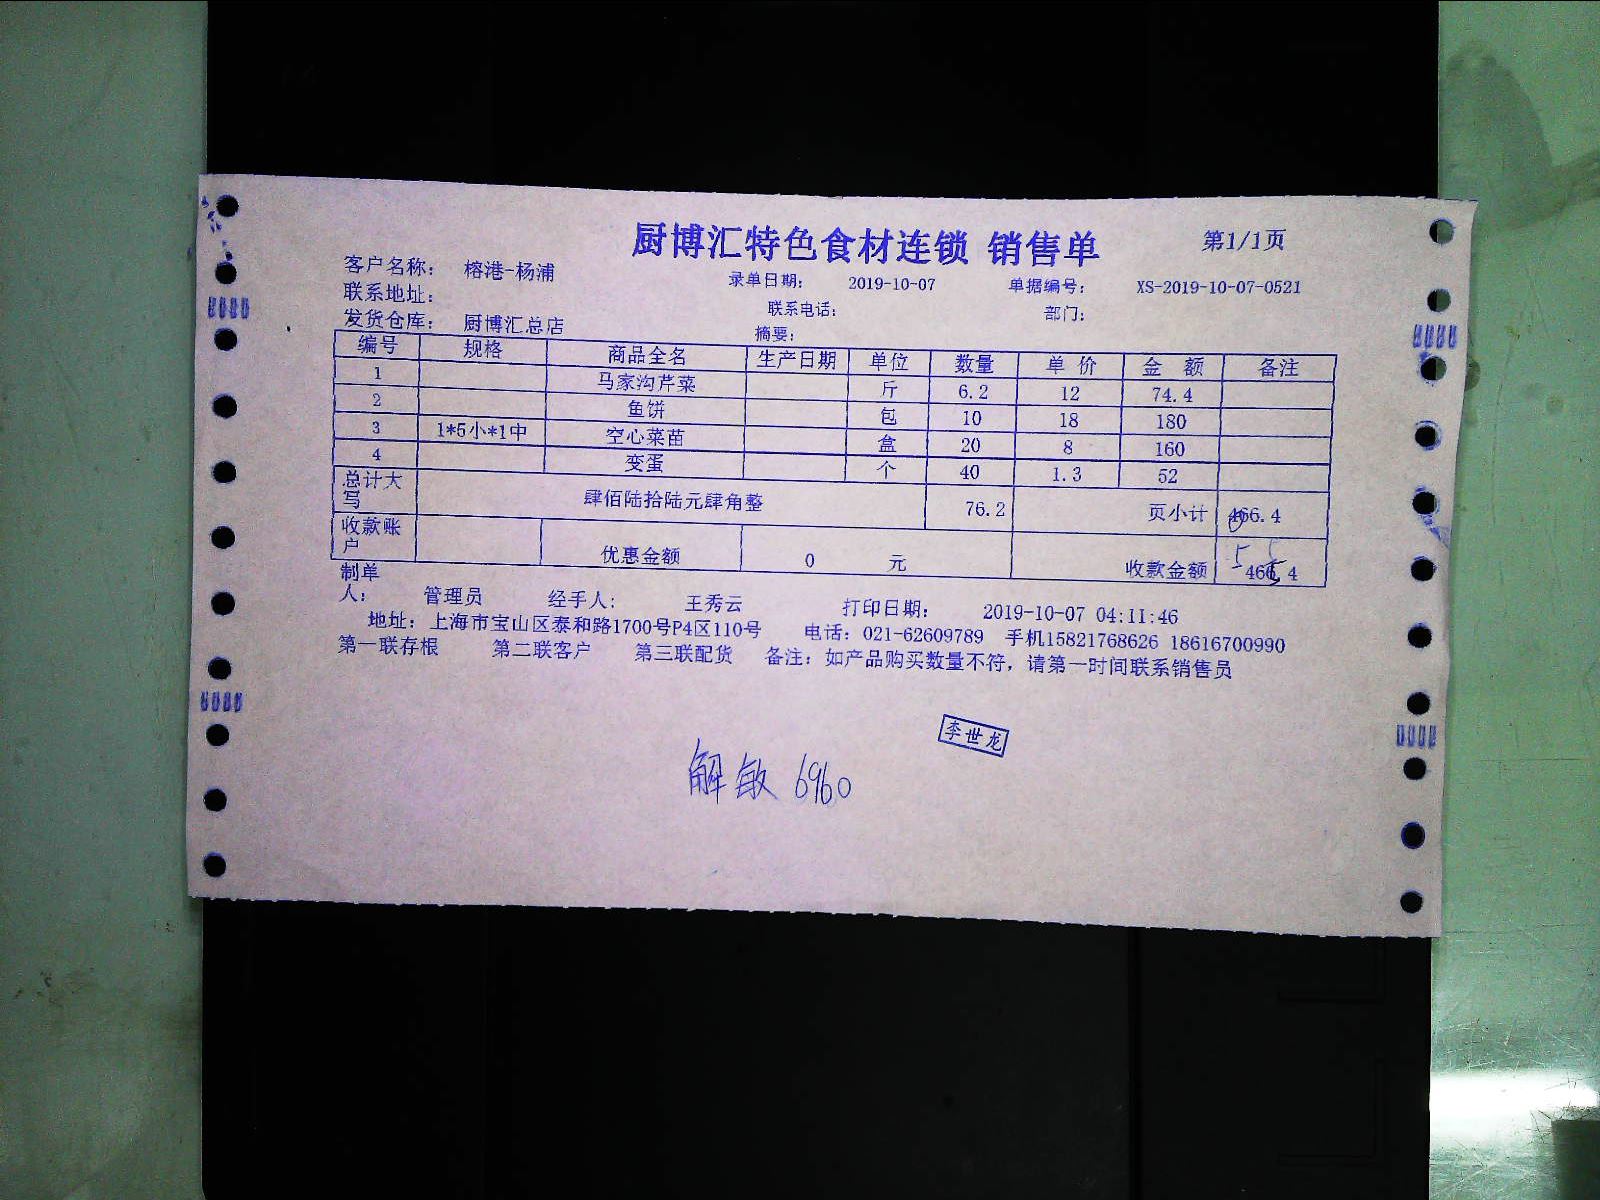 厨博汇特色食材连锁 销售单 第1/1页
客户名称： 榕港-杨浦 录单日期： 2019-10-07 单据编号： XS-2019-10-07-0521
联系地址： 联系电话： 部门：
发货仓库： 厨博汇总店 摘要：
编号 规格 商品全名 生产日期 单位 数量 单 价 金 额 备注
1 马家沟芹菜 斤 6.2 12 74.4
2 鱼饼 包 10 18 180
3 1*5小*1中 空心菜苗 盒 20 8 160
4 变蛋 个 40 1.3 52
总计大写 肆佰陆拾陆元肆角整 76.2 页小计 466.4
收款账户 优惠金额 0 元 收款金额 466.4
制单人： 管理员 经手人： 王秀云 打印日期： 2019-10-07 04:11:46
地址：上海市宝山区泰和路1700号P4区110号 电话：021-62609789 手机15821768626 18616700990
第一联存根 第二联客户 第三联配货 备注：如产品购买数量不符，请第一时间联系销售员
李世龙
解敏 6960